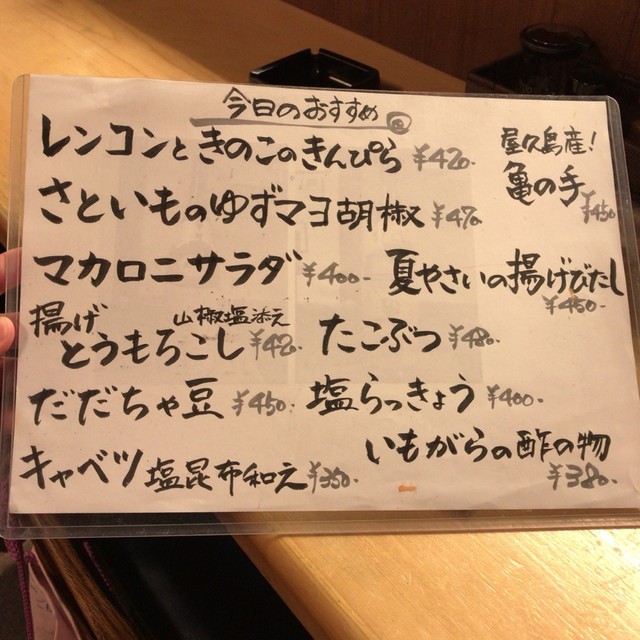 今日のおすすめ
レンコンときのこのきんぴら ¥420-
屋久島産!
亀の手 ¥450
さといものゆずマヨ胡椒 ¥470
マカロニサラダ ¥400-
夏やさいの揚げびたし
¥450-
揚げ 山椒塩添え
とうもろこし ¥420-
たこぶつ ¥480-
だだちゃ豆 ¥450-
塩らっきょう ¥400-
いもがらの酢の物
¥380-
キャベツ塩昆布和え ¥350-